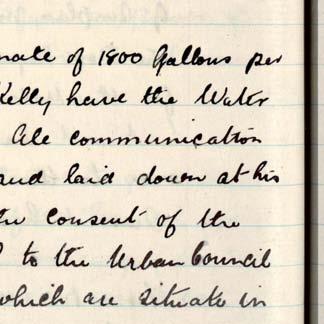 mate of 1800 Gallons per
Kelly have the Water
All communication
and laid down at his
the consent of the
to the Urban Council
which are situate in